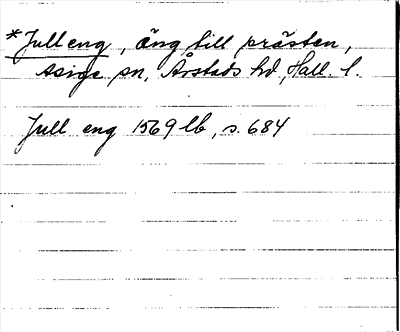 *Jull eng, äng till prästen,
Asige sn, Årstads hd, Hall. l.
Jull eng 1569 lb, s. 684